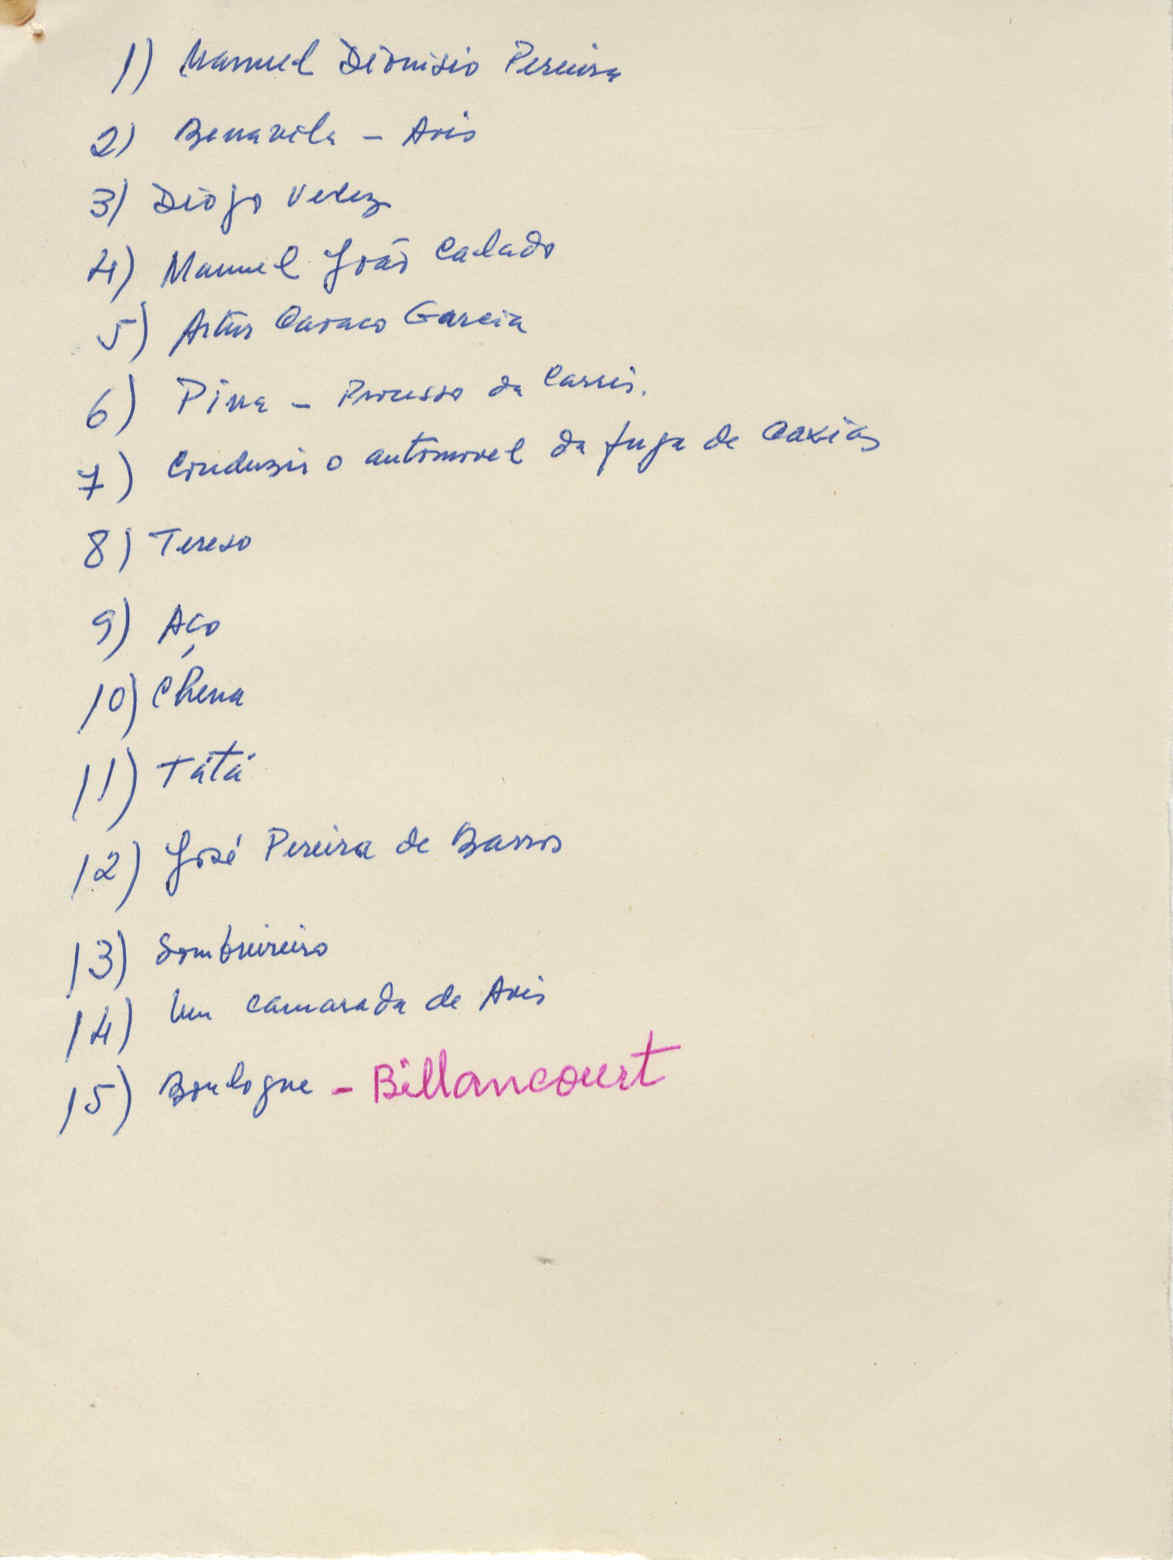 1) Manuel Dionisio Pereira
2) Benavila - Avis
3) Diogo Velez
4) Manuel João Calado
5) Artur Caraco Garcia
6) Pina - Processo da Carris.
7) Conduziu o automovel da fuga de Caxias
8) Tereso
9) Aço
10) Chena
11) Tátá
12) José Pereira de Barros
13) Sombreireiro
14) Um camarada de Avis
15) Boulogne - Billancourt